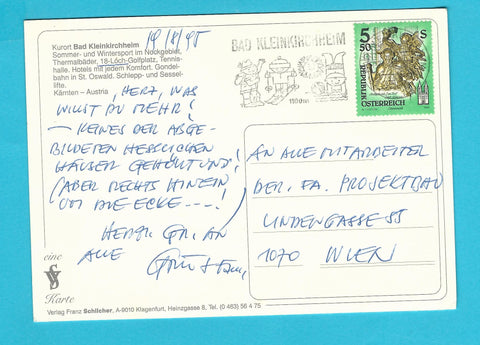 Kurort Bad Kleinkirchheim
Sommer- und Wintersport im Nockgebiet,
Thermalbäder, 18-Loch-Golfplatz, Tennis-
halle. Hotels mit jedem Komfort. Gondel-
bahn in St. Oswald. Schlepp- und Sessel-
lifte.
Kärnten – Austria
BAD KLEINKIRCHHEIM
1100 m
5 50 S
REPUBLIK
ÖSTERREICH
HERZ, WAS
WILLST DU MEHR!
– KEINES DER ABGE-
BILDETEN HESSLICHEN
HÄUSER GEHÖRT UNS!
(ABER RECHTS HINTEN
UM DIE ECKE ----!
HERZL. GR. AN
ALLE
AN ALLE MITARBEITER
DER FA. PROJEKTBAU
LINDENGASSE 55
1070 WIEN
eine
Karte
Verlag Franz Schilcher, A-9010 Klagenfurt, Heinzgasse 8, Tel. (0 463) 56 4 75